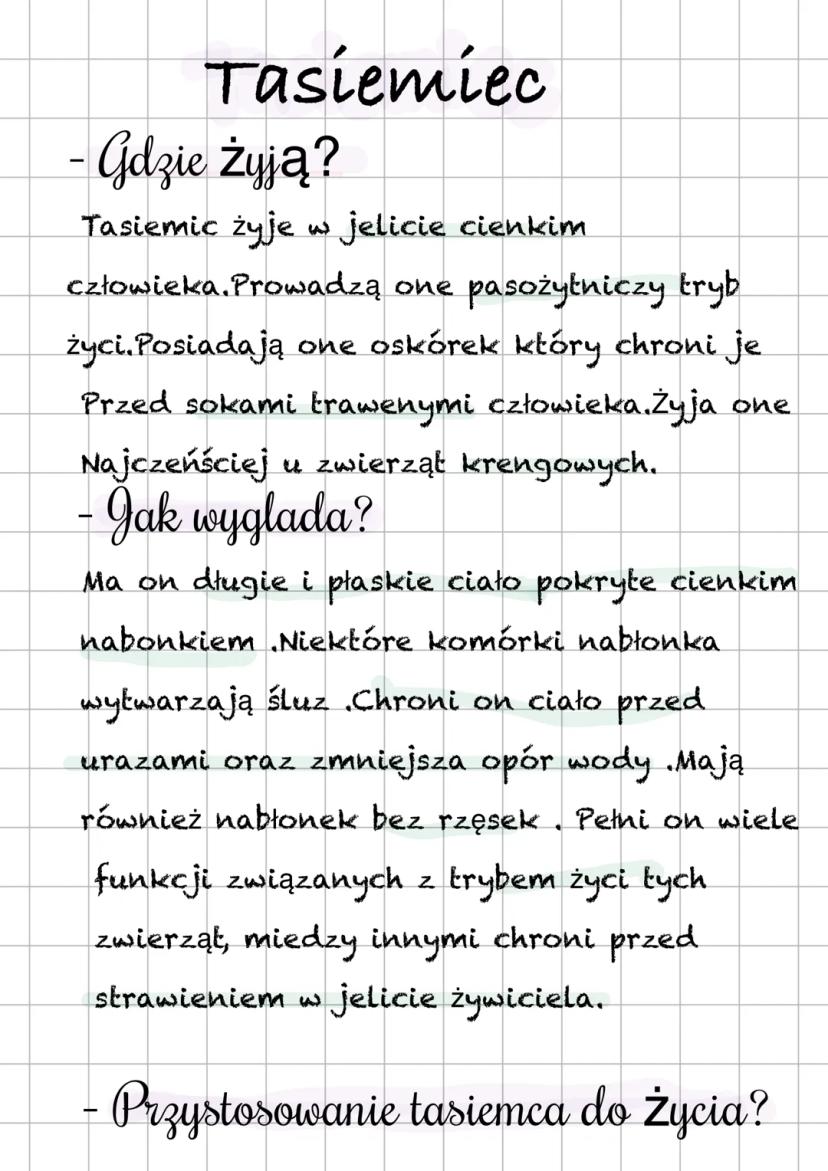 Tasiemiec
- Gdzie żyją?
Tasiemic żyje w jelicie cienkim
człowieka.Prowadzą one pasożytniczy tryb
życi.Posiadają one oskórek który chroni je
Przed sokami trawenymi człowieka.Żyja one
Najczeńściej u zwierząt krengowych.
- Jak wyglada?
Ma on długie i płaskie ciało pokryte cienkim
nabonkiem .Niektóre komórki nabłonka
wytwarzają śluz .Chroni on ciało przed
urazami oraz zmniejsza opór wody .Mają
również nabłonek bez rzęsek . Pełni on wiele
funkcji związanych z trybem życi tych
zwierząt, miedzy innymi chroni przed
strawieniem w jelicie żywiciela.
- Przystosowanie tasiemca do Życia?